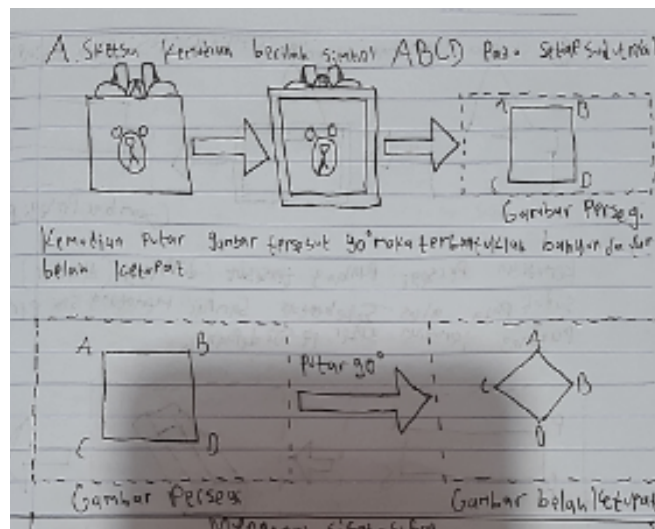 A. Sketsa kemudian berilah simbol ABCD pada setiap sudutnya
A B
C D
Gambar Persegi
Kemudian Putar gambar tersebut 90° maka terbentuklah bangun datar
belah ketupat
A B
C D
Putar 90°
A
C B
D
Gambar Persegi
Gambar belah ketupat